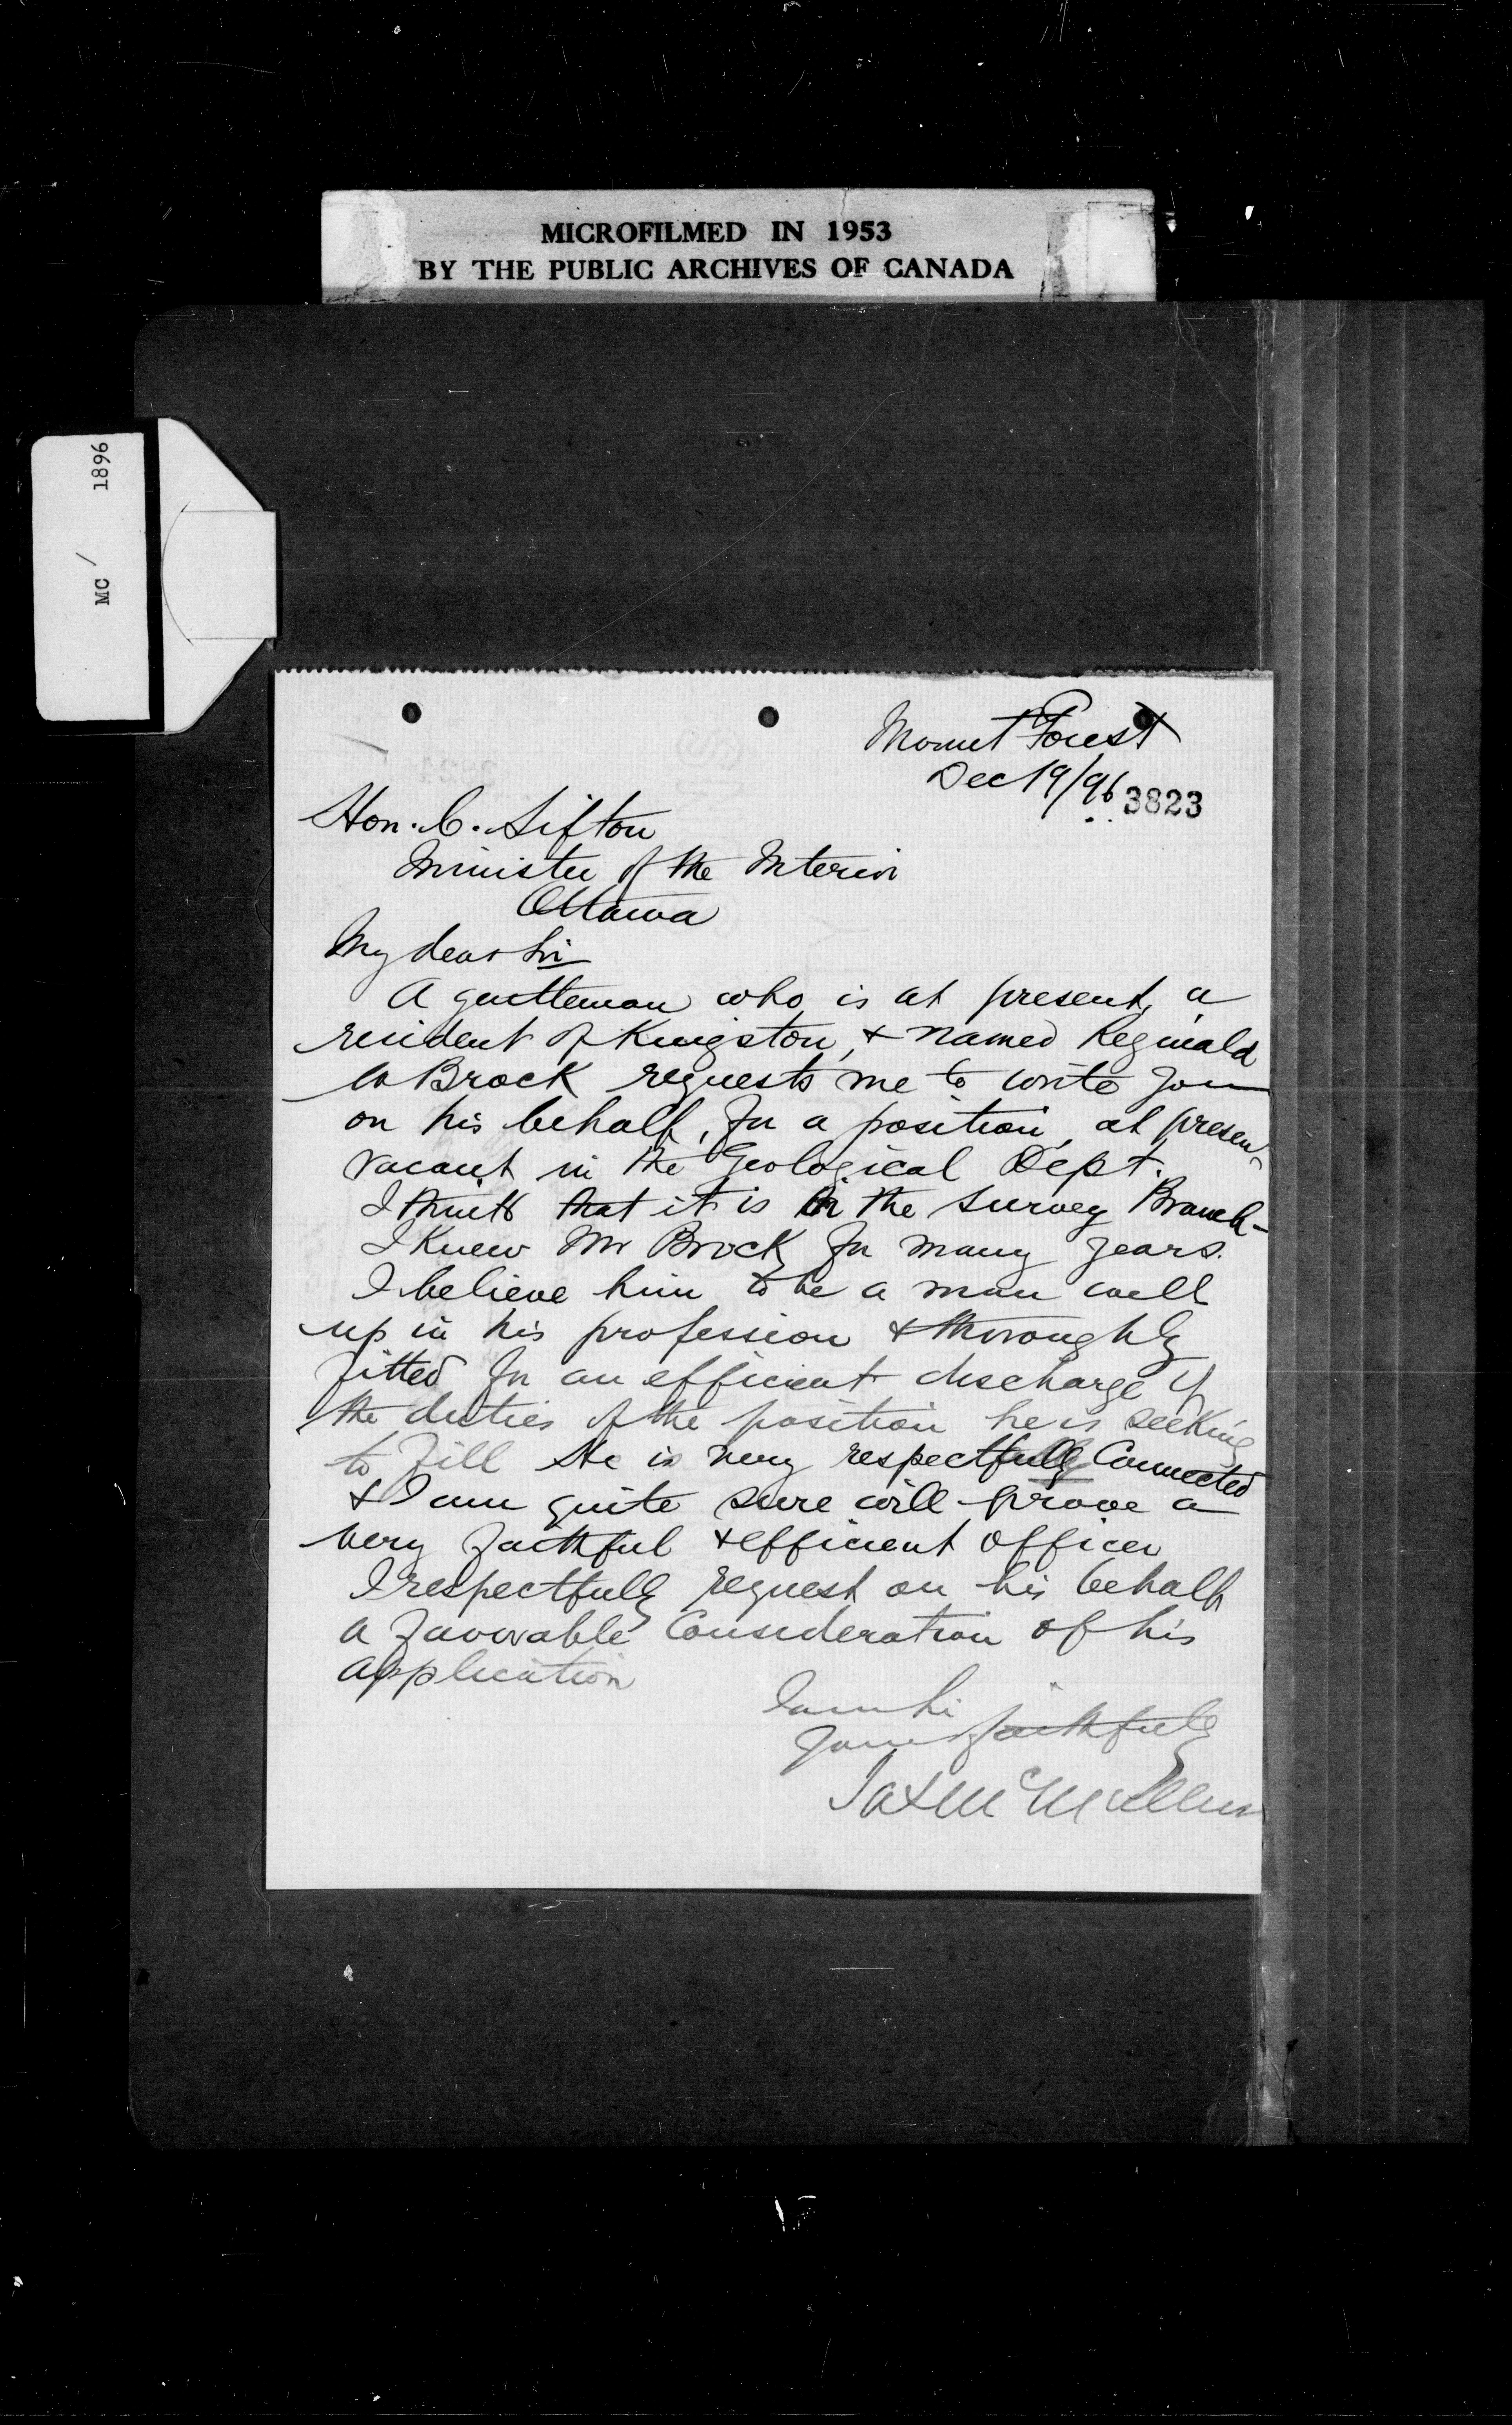 MICROFILMED IN 1953
BY THE PUBLIC ARCHIVES OF CANADA
MC / 1896
Mount Forest
Dec 19/96
3823
Hon. C. Sifton
Minister of the Interior
Ottawa
My dear Sir
A gentleman who is at present, a
resident of Kingston, & named Reginald
W Brock requests me to write you
on his behalf, for a position, at present
vacant in the Geological Dept.
I think that it is in the Survey Branch-
I Knew Mr Brock for many years.
I believe him to be a man well
up in his profession & thoroughly
fitted for an efficient discharge of
the duties of the position he is seeking
to fill He is very respectfully Connected
& I am quite sure will prove a
very faithful & efficient officer
I respectfully request on his behalf
a favorable Consideration of his
application
I am Sir
Yours faithfully
Jas McMullen